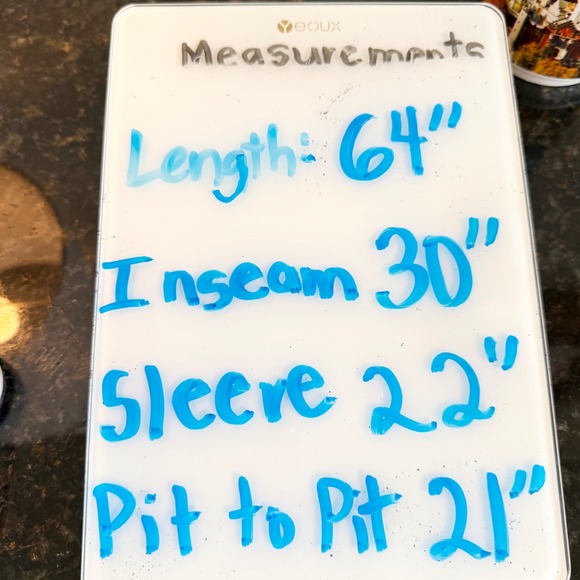 YEOUX
Measurements
Length: 64"
Inseam 30"
Sleeve 22"
Pit to Pit 21"